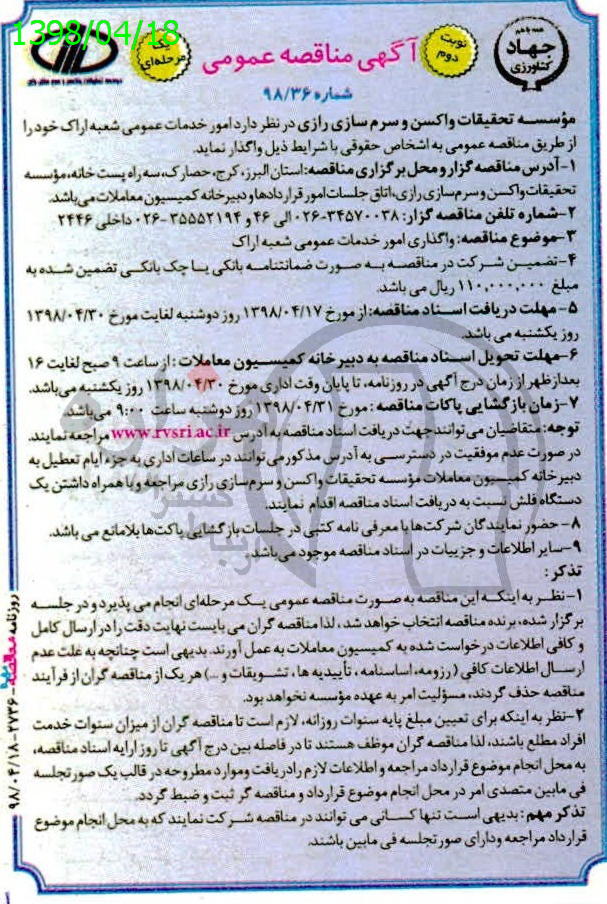 1398/04/18
همه با هم
جهاد
کشاورزی
نوبت
دوم
آگهی مناقصه عمومی
یک
مرحله‌ای
شماره ۹۸/۳۶
مؤسسه تحقیقات واکسن و سرم سازی رازی در نظر دارد امور خدمات عمومی شعبه اراک خود را
از طریق مناقصه عمومی به اشخاص حقوقی با شرایط ذیل واگذار نماید.
۱-آدرس مناقصه گزار و محل برگزاری مناقصه: استان البرز، کرج، حصارک، سه راه پست خانه، مؤسسه
تحقیقات واکسن و سرم سازی رازی، اتاق جلسات امور قراردادها و دبیرخانه کمیسیون معاملات می‌باشد.
۲-شماره تلفن مناقصه گزار: ۳۴۵۷۰۰۳۸-۰۲۶ الی ۴۶ و ۳۵۵۵۲۱۹۴-۰۲۶ داخلی ۲۴۴۶
۳-موضوع مناقصه: واگذاری امور خدمات عمومی شعبه اراک
۴-تضمین شرکت در مناقصه به صورت ضمانتنامه بانکی یا چک بانکی تضمین شده به
مبلغ ۱۱۰,۰۰۰,۰۰۰ ریال می باشد.
۵- مهلت دریافت اسناد مناقصه: از مورخ ۱۳۹۸/۰۴/۱۷ روز دوشنبه لغایت مورخ ۱۳۹۸/۰۴/۳۰
روز یکشنبه می باشد.
۶-مهلت تحویل اسناد مناقصه به دبیرخانه کمیسیون معاملات: از ساعت ۹ صبح لغایت ۱۶
بعدازظهر از زمان درج آگهی در روزنامه، تا پایان وقت اداری مورخ ۱۳۹۸/۰۴/۳۰ روز یکشنبه می‌باشد.
۷-زمان بازگشایی پاکات مناقصه: مورخ ۱۳۹۸/۰۴/۳۱ روز دوشنبه ساعت ۹:۰۰ می‌باشد.
توجه: متقاضیان می‌توانند جهت دریافت اسناد مناقصه به آدرس www.rvsri.ac.ir مراجعه نمایند.
در صورت عدم موفقیت در دسترسی به آدرس مذکور می‌توانند در ساعات اداری به جزء ایام تعطیل به
دبیرخانه کمیسیون معاملات مؤسسه تحقیقات واکسن و سرم سازی رازی مراجعه و با همراه داشتن یک
دستگاه فلش نسبت به دریافت اسناد مناقصه اقدام نمایند.
۸- حضور نمایندگان شرکت‌ها با معرفی نامه کتبی در جلسات بازگشایی پاکت‌ها بلامانع می باشد.
۹-سایر اطلاعات و جزییات در اسناد مناقصه موجود می‌باشد.
تذکر:
۱-نظر به اینکه این مناقصه به صورت مناقصه عمومی یک مرحله‌ای انجام می پذیرد و در جلسه
برگزار شده، برنده مناقصه انتخاب خواهد شد، لذا مناقصه گران می بایست نهایت دقت را در ارسال کامل
و کافی اطلاعات درخواست شده به کمیسیون معاملات به عمل آورند. بدیهی است چنانچه به علت عدم
ارسال اطلاعات کافی (رزومه، اساسنامه، تأییدیه ها، تشویقات و ...) هر یک از مناقصه گران از فرآیند
مناقصه حذف گردند، مسؤلیت امر به عهده مؤسسه نخواهد بود.
۲-نظر به اینکه برای تعیین مبلغ پایه سنوات روزانه، لازم است تا مناقصه گران از میزان سنوات خدمت
افراد مطلع باشند، لذا مناقصه گران موظف هستند تا در فاصله بین درج آگهی تا روز ارایه اسناد مناقصه،
به محل انجام موضوع قرارداد مراجعه و اطلاعات لازم را دریافت و موارد مطروحه در قالب یک صورتجلسه
فی مابین متصدی امر در محل انجام موضوع قرارداد و مناقصه گر ثبت و ضبط گردد.
تذکر مهم: بدیهی است تنها کسانی می توانند در مناقصه شرکت نمایند که به محل انجام موضوع
قرارداد مراجعه و دارای صورتجلسه فی مابین باشند.
روزنامه مناقصه - ۲۷۳۶ - ۹۸/۰۴/۱۸